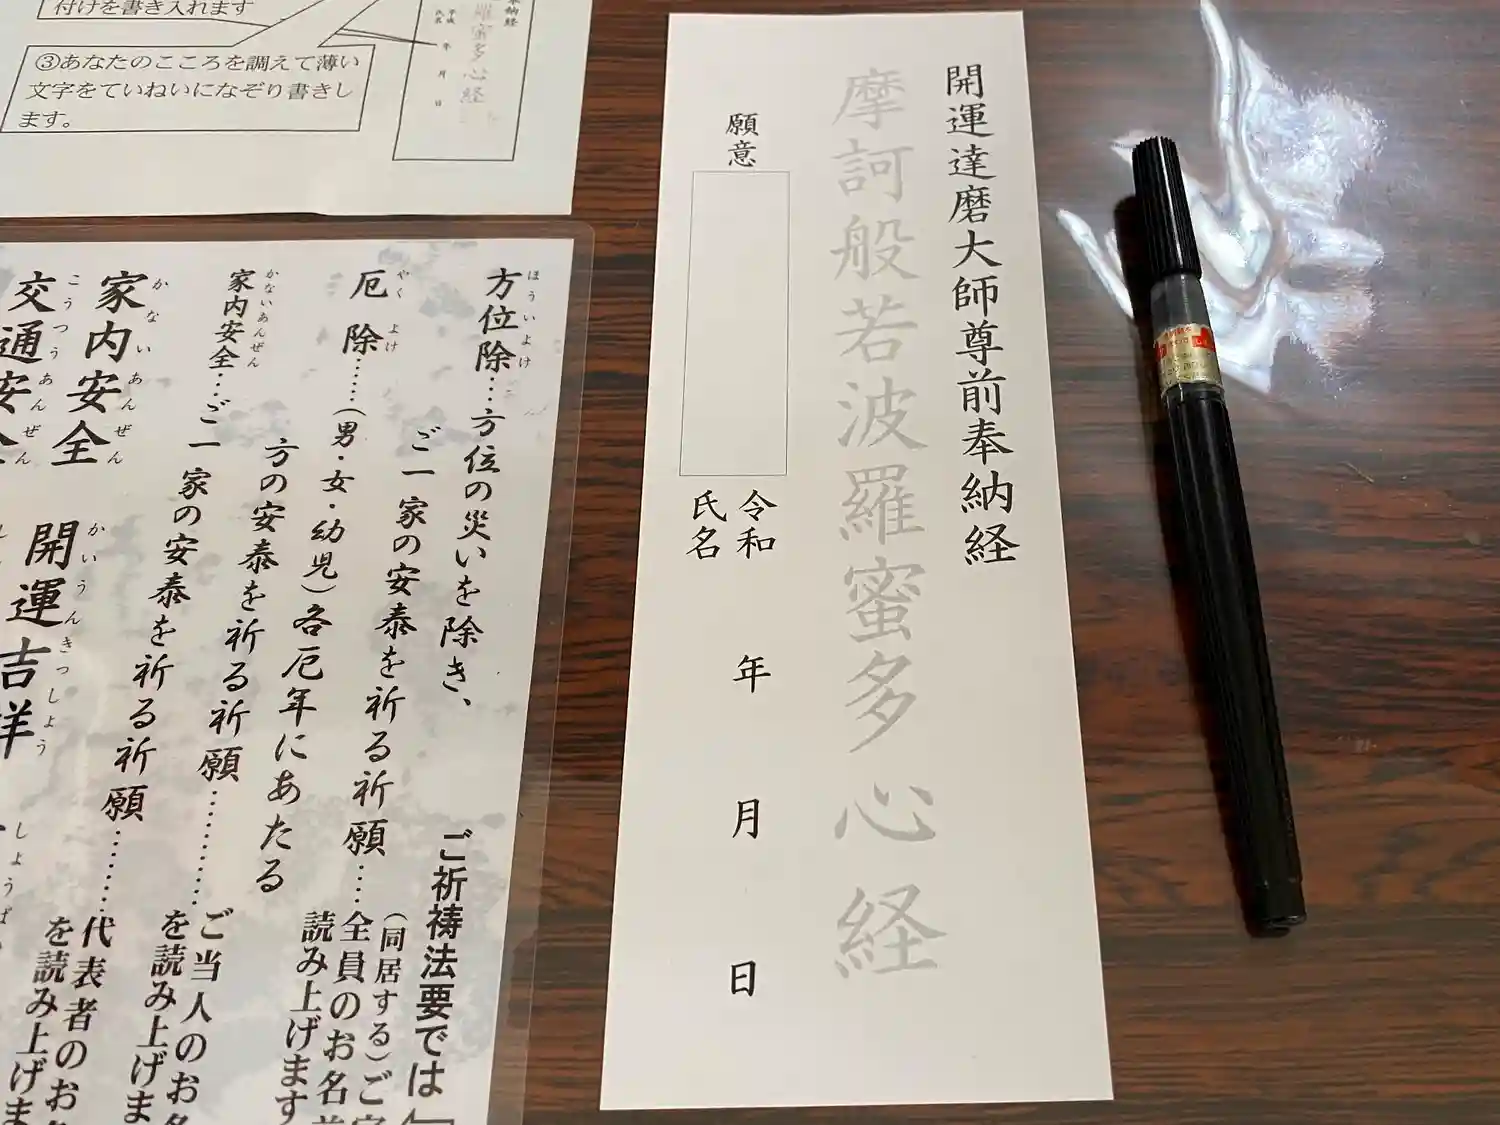 付けを書き入れます
③あなたのこころを調えて薄い
文字をていねいになぞり書きし
ます。
納経
羅蜜多心経
平成 年 月 日
氏名
開運達磨大師尊前奉納経
摩訶般若波羅蜜多心経
願意
令和 年 月 日
氏名
方位除…方位の災いを除き、
ほういよけ
ご一家の安泰を祈る祈願……
厄除……(男・女・幼児)各厄年にあたる
やくよけ
方の安泰を祈る祈願………
家内安全…ご一家の安泰を祈る祈願………
かないあんぜん
ご祈祷法要では「
(同居する)ご
全員のお名前
読み上げます
ご当人のお名
を読み上げま
代表者のお
を読み上げま
家内安全
かないあんぜん
交通安全
こうつうあんぜん
開運吉祥
かいうんきっしょう